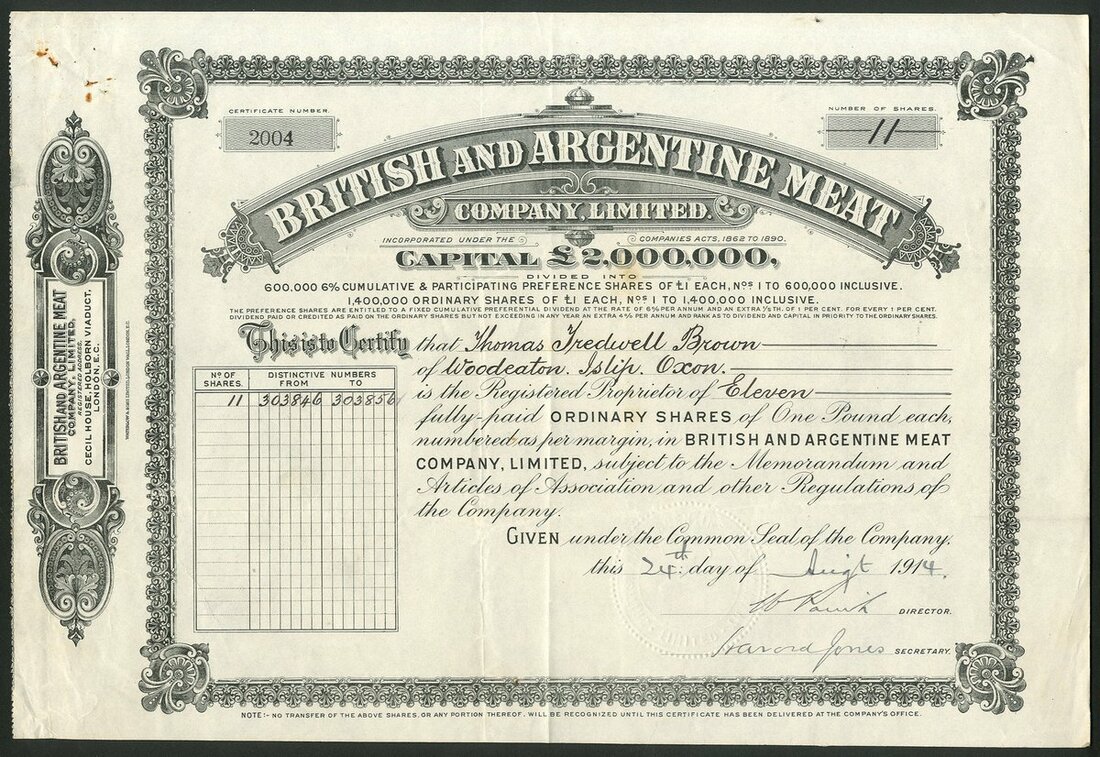 CERTIFICATE NUMBER.
2004
NUMBER OF SHARES.
11
BRITISH AND ARGENTINE MEAT
COMPANY, LIMITED.
INCORPORATED UNDER THE COMPANIES ACTS, 1862 TO 1890.
CAPITAL £2,000,000,
DIVIDED INTO
600,000 6% CUMULATIVE & PARTICIPATING PREFERENCE SHARES OF £1 EACH, Nos 1 TO 600,000 INCLUSIVE.
1,400,000 ORDINARY SHARES OF £1 EACH, Nos 1 TO 1,400,000 INCLUSIVE.
THE PREFERENCE SHARES ARE ENTITLED TO A FIXED CUMULATIVE PREFERENTIAL DIVIDEND AT THE RATE OF 6% PER ANNUM AND AN EXTRA 1/5TH. OF 1 PER CENT. FOR EVERY 1 PER CENT.
DIVIDEND PAID OR CREDITED AS PAID ON THE ORDINARY SHARES BUT NOT EXCEEDING IN ANY YEAR AN EXTRA 4% PER ANNUM AND RANK AS TO DIVIDEND AND CAPITAL IN PRIORITY TO THE ORDINARY SHARES.
This is to Certify that Thomas Tredwell Brown
of Woodeaton. Islip. Oxon.
is the Registered Proprietor of Eleven
fully-paid ORDINARY SHARES of One Pound each,
numbered as per margin, in BRITISH AND ARGENTINE MEAT
COMPANY, LIMITED, subject to the Memorandum and
Articles of Association and other Regulations of
the Company.
GIVEN under the Common Seal of the Company,
this 24th day of Augt 1914.
DIRECTOR.
Jones SECRETARY.
No OF SHARES.
DISTINCTIVE NUMBERS
FROM TO
11 303846 303856
BRITISH AND ARGENTINE MEAT
COMPANY, LIMITED,
REGISTERED ADDRESS,
CECIL HOUSE, HOLBORN VIADUCT,
LONDON, E.C.
NOTE:- NO TRANSFER OF THE ABOVE SHARES, OR ANY PORTION THEREOF, WILL BE RECOGNIZED UNTIL THIS CERTIFICATE HAS BEEN DELIVERED AT THE COMPANY'S OFFICE.